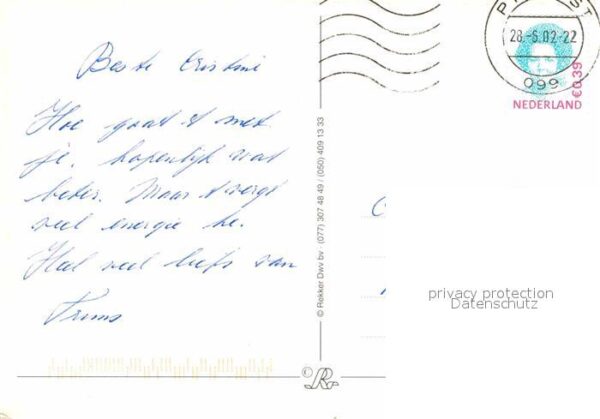 Beste Cristine
Hoe gaat 't met
je, hopenlijk wat
beter. Maar 't vergt
veel energie he.
Heel veel liefs van
Truus
© Rekker Dwv bv (077) 307 48 49 / (050) 409 13 33
28-6.02-22
099
€0,39
NEDERLAND
privacy protection
Datenschutz